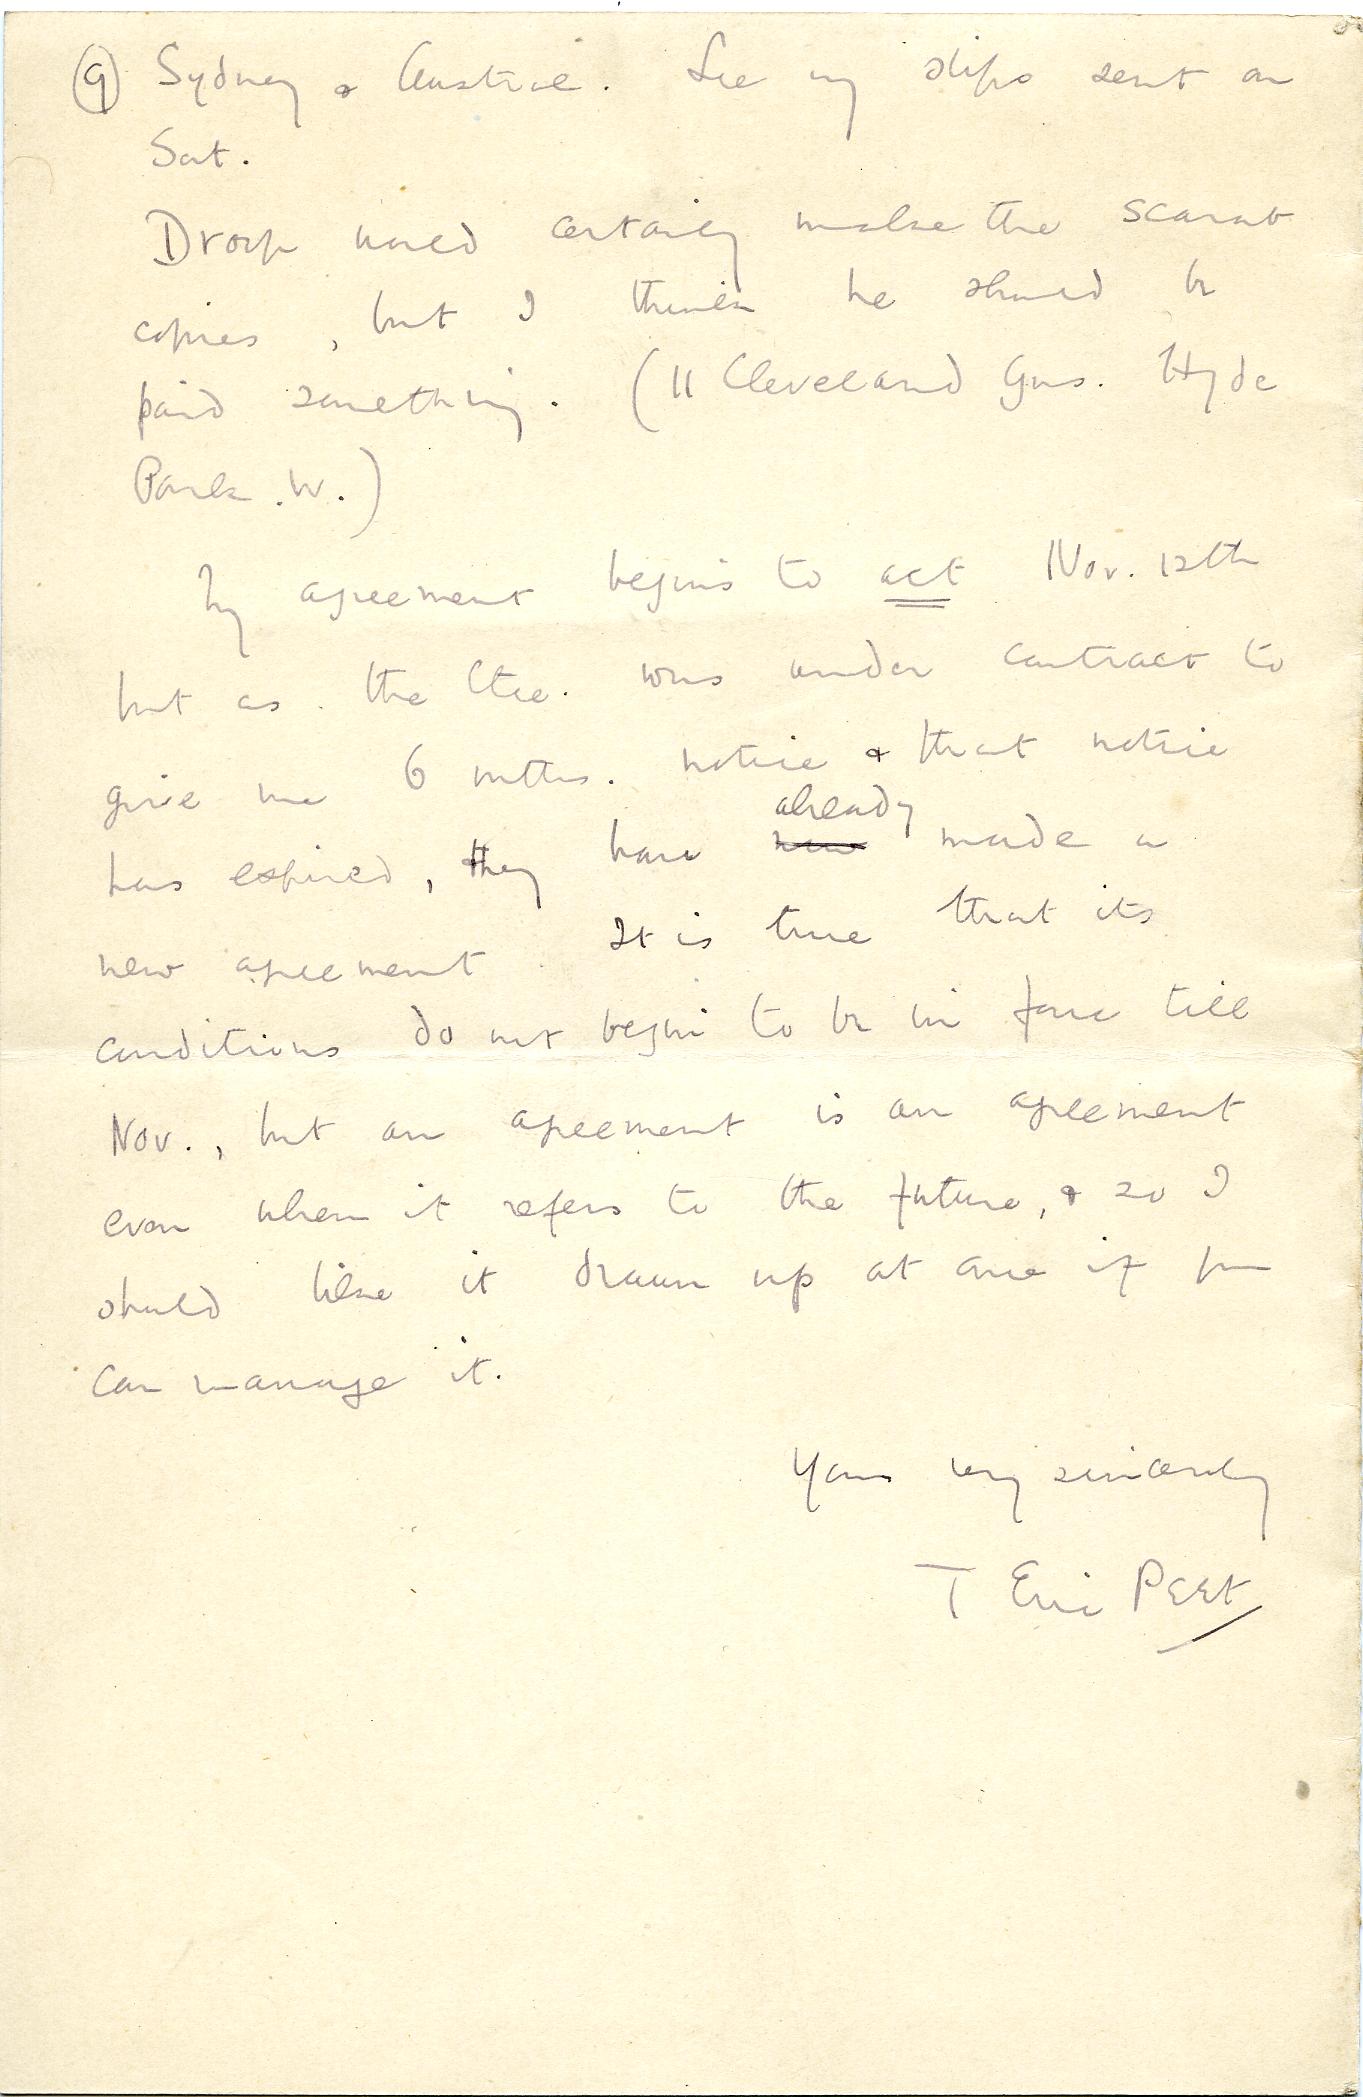 (9) Sydney & Austral. See my slips sent on
Sat.
Droop would certainly make the scarab
copies, but I think he should be
paid something. (11 Cleveland Gns. Hyde
Park. W.)
My agreement begins to act Nov. 12th
but as the Ctee. was under contract to
give me 6 mths. notice & that notice
already
has expired, they have now made a
new agreement. It is true that its
conditions do not begin to be in force till
Nov., but an agreement is an agreement
even when it refers to the future, & so I
should like it drawn up at once if you
can manage it.
Yours very sincerely
T Eric Peet